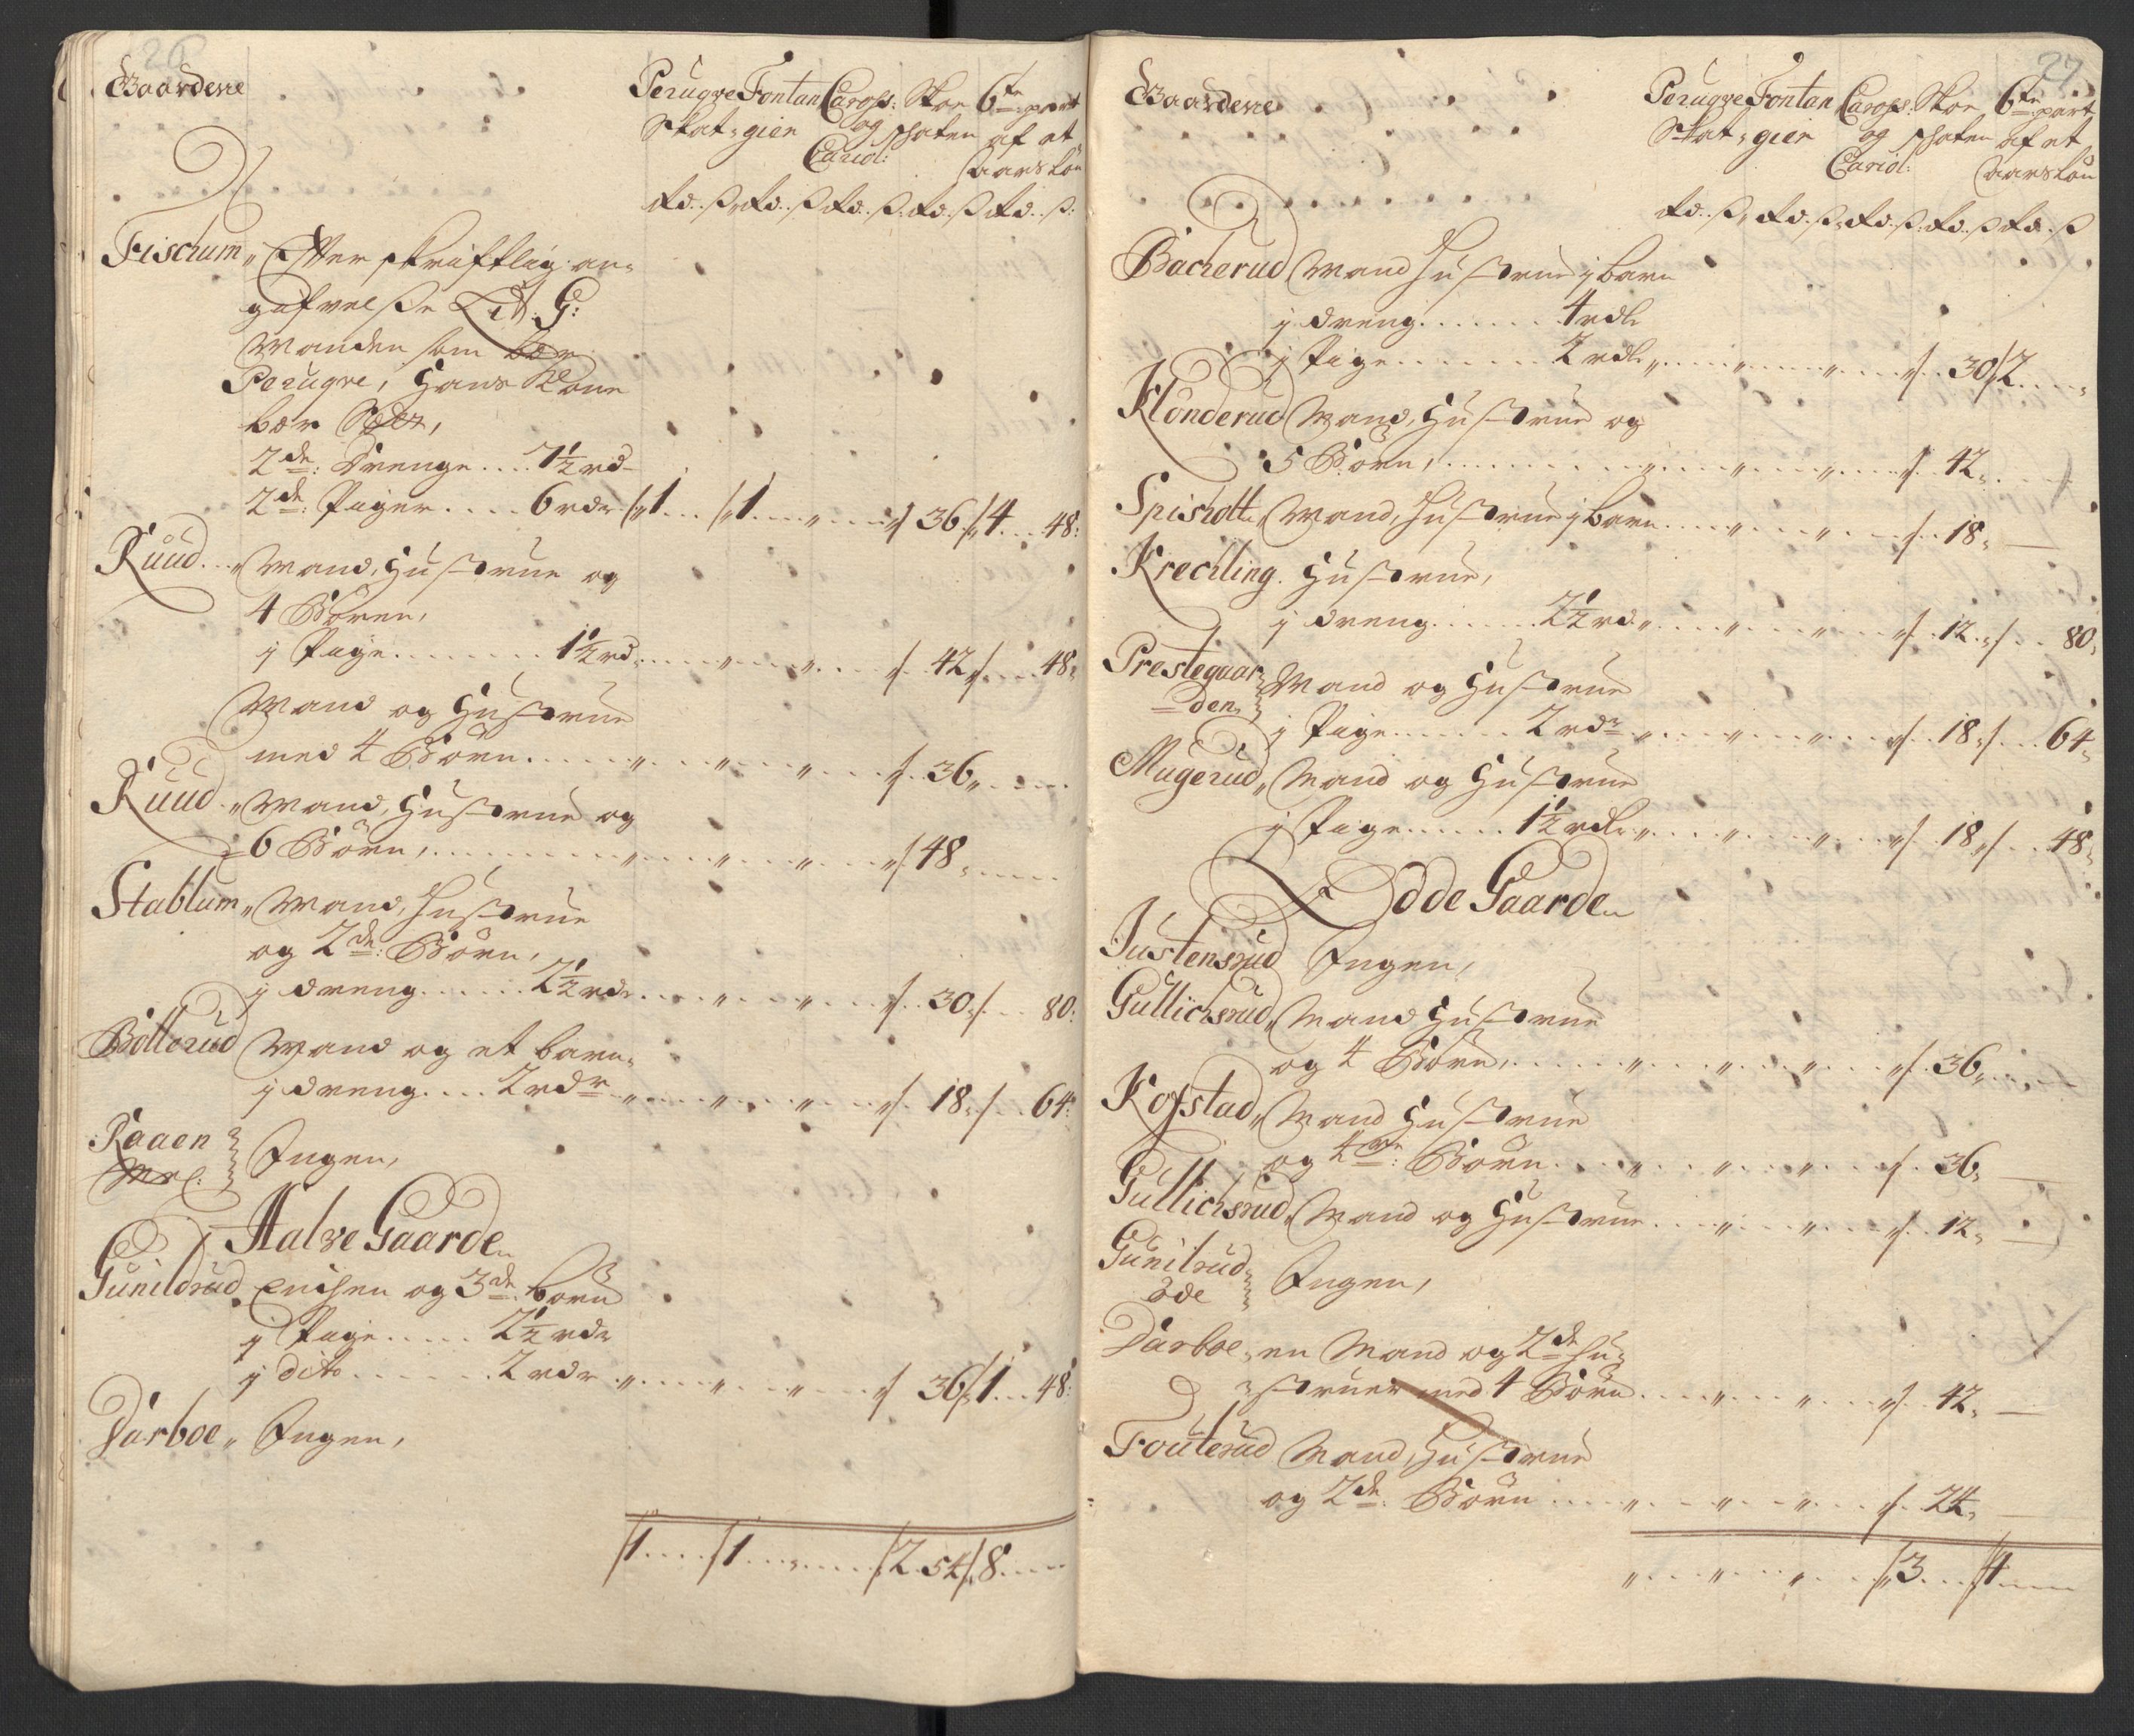 26
Gaardene
Perugve Fontan Caross: Skoe 6te part
Skat, gien og schaten af et
Cariol: Aarsløn
rd. ß rd. ß rd. ß rd. ß rd. ß
Fischum, Efter skriftlig an-
gifvelsse Lit. G:
Manden som bær
Perugve, Hans Kone
bær
2de: Drenge .... 7½ rd
2de: Piger .... 6 rdr 1 1 36 4 48
Ruud Mand, Hustrue og
4 Börn,
j Pige ....... 1½ rd 42 48
Mand og Hustrue
med 4 Börn 36
Ruud Mand, Hustrue og
6 Börn, 48
Stablum Mand, Hustrue
og 2de: Börn,
j dreng ...... 2½ rdr 30 80
Bötterud Mand og et barn,
j dreng .... 2 rdr 18 64
Raaen Ingen,
Halve Gaarde
Gunildrud Enchen og 3de börn
j Pige ..... 2½ rdr
j dito ...... 2 rdr 36 1 48
Darboe, Ingen,
1 1 2 54 8
27
Gaardene
Perugve Fontan Caross: Skoe 6te part
Skat, gien og schaten af et
Cariol: Aarsløn
rd. ß rd. ß rd. ß rd. ß rd. ß
Bacherud Mand Hustrue j barn
j dreng ....... 4 rdl
j Pige ....... 2 rdl 30 2
Klönderud Mand, Hustrue og
5 Börn, 42
Spisholt Mand, Hustrue j barn 18
Krechling Hustrue,
j dreng ...... 2½ rd 12 80
Prestegaar
den, Mand og Hustrue
j Pige ...... 2 rdr 18 64
Mugerud, Mand og Hustrue
j Pige ..... 1½ rdl 18 48
Ödde Gaarde
Justensrud Ingen,
Gullichsrud, Mand Hustrue
og 4 Börn, 36
Kofstad, Mand Hustrue
og 4re: Börn 36
Gullichsrud, Mand og Hustrue 12
Gunilrud
öde Ingen,
Darboe, en Mand og 2de hu-
struer med 4 Börn 42
Fouterud Mand, Hustrue
og 2de: Börn 24
3 4